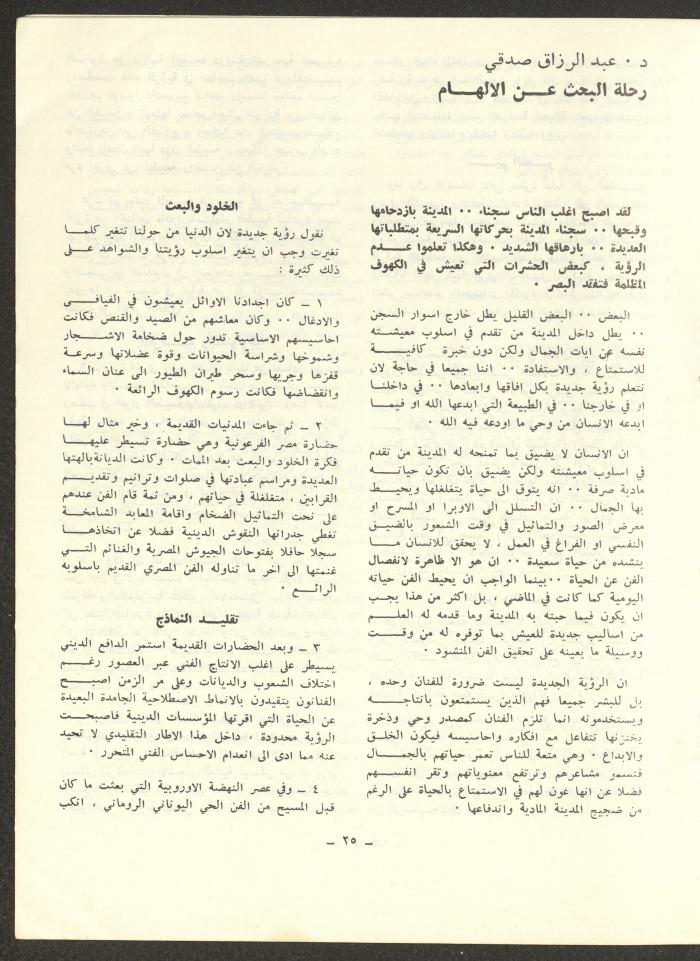 د ٠ عبد الرزاق صدقي
رحلة البحث عــن الالهـــام
لقد اصبح اغلب الناس سجناء ٠٠ المدينة بازدحامها
وقبحها ٠٠ سجناء المدينة بحركاتها السريعة بمتطلباتها
العديدة ٠٠ بارهاقها الشديد ٠ وهكذا تعلموا عـــدم
الرؤية ، كبعض الحشرات التي تعيش في الكهوف
المظلمة فتفقد البصر ٠
البعض ٠٠ البعض القليل يطل خارج اسوار السجن
٠٠ يطل داخل المدينة من تقدم في اسلوب معيشتـه
نفسه عن ايات الجمال ولكن دون خبرة كافيـــة
للاستمتاع ، والاستفادة ٠٠ اننا جميعا في حاجة لان
نتعلم رؤية جديدة بكل افاقها وابعادها ٠٠ في داخلنـا
او في خارجنا ٠٠ في الطبيعة التي ابدعها الله او فيمـا
ابدعه الانسان من وحي ما اودعه فيه الله ٠
ان الانسان لا يضيق بما تمنحه له المدينة من تقدم
في اسلوب معيشته ولكن يضيق بان تكون حياتـــه
مادية صرفة ٠٠ انه يتوق الى حياة يتغلغلها ويحيــط
بها الجمال ٠٠ ان التسلل الى الاوبرا او المسرح او
معرض الصور والتماثيل في وقت الشعور بالضيـق
النفسي او الفراغ في العمل ، لا يحقق للانسان مـــا
ينشده من حياة سعيدة ٠٠ ان هو الا ظاهرة لانفصال
الفن عن الحياة ٠٠ بينما الواجب ان يحيط الفن حياته
اليومية كما كانت في الماضي ، بل اكثر من هذا يجـب
ان يكون فيما حبته به المدينة وما قدمه له العلـــم
من اساليب جديدة للعيش بما توفره له من وقـــت
ووسيلة ما يعينه على تحقيق الفن المنشود ٠
ان الرؤية الجديدة ليست ضرورة للفنان وحده ،
بل للبشر جميعا فهم الذين يستمتعون بانتاجـــه
ويستخدمونه انما تلزم الفنان كمصدر وحي وذخرة
يختزنها تتفاعل مع افكاره واحاسيسه فيكون الخلـق
والابداع ٠ وهي متعة للناس تعمر حياتهم بالجمــال
فتسمو مشاعرهم وترتفع معنوياتهم وتقر انفسهــم
فضلا عن انها عون لهم في الاستمتاع بالحياة على الرغم
من ضجيج المدينة المادية واندفاعها ٠
الخلود والبعث
نقول رؤية جديدة لان الدنيا من حولنا تتغير كلمـا
تغيرت وجب ان يتغير اسلوب رؤيتنا والشواهد علـى
ذلك كثيرة :
١ ــ كان اجدادنا الاوائل يعيشون في الفيافــي
والادغال ٠٠ وكان معاشهم من الصيد والقنص فكانت
احاسيسهم الاساسية تدور حول ضخامة الاشـــجار
وشموخها وشراسة الحيوانات وقوة عضلاتها وسرعـة
قفزها وجريها وسحر طيران الطيور الى عنان السماء
وانقضاضها فكانت رسوم الكهوف الرائعة ٠
٢ ــ ثم جاءت المدنيات القديمة ، وخير مثال لهــا
حضارة مصر الفرعونية وهي حضارة تسيطر عليهـا
فكرة الخلود والبعث بعد الممات ٠ وكانت الديانة بالهتها
العديدة ومراسم عبادتها في صلوات وترانيم وتقديــم
القرابين ، متغلغلة في حياتهم ، ومن ثمة قام الفن عندهم
على نحت التماثيل الضخام واقامة المعابد الشامخــة
تغطي جدرانها النقوش الدينية فضلا عن اتخاذهــا
سجلا حافلا بفتوحات الجيوش المصرية والغنائم التــي
غنمتها الى اخر ما تناوله الفن المصري القديم باسلوبه
الرائــع ٠
تقليـد النماذج
٣ ــ وبعد الحضارات القديمة استمر الدافع الديني
يسيطر على اغلب الانتاج الفني عبر العصور رغــم
اختلاف الشعوب والديانات وعلى مر الزمن اصبـــح
الفنانون يتقيدون بالانماط الاصطلاحية الجامدة البعيدة
عن الحياة التي اقرتها المؤسسات الدينية فاصبحـت
الرؤية محدودة ، داخل هذا الاطار التقليدي لا تحيد
عنه مما ادى الى انعدام الاحساس الفني المتحرر ٠
٤ ــ وفي عصر النهضة الاوروبية التي بعثت ما كان
قبل المسيح من الفن الحي اليوناني الروماني ، انكب
ــ ٢٥ ــ